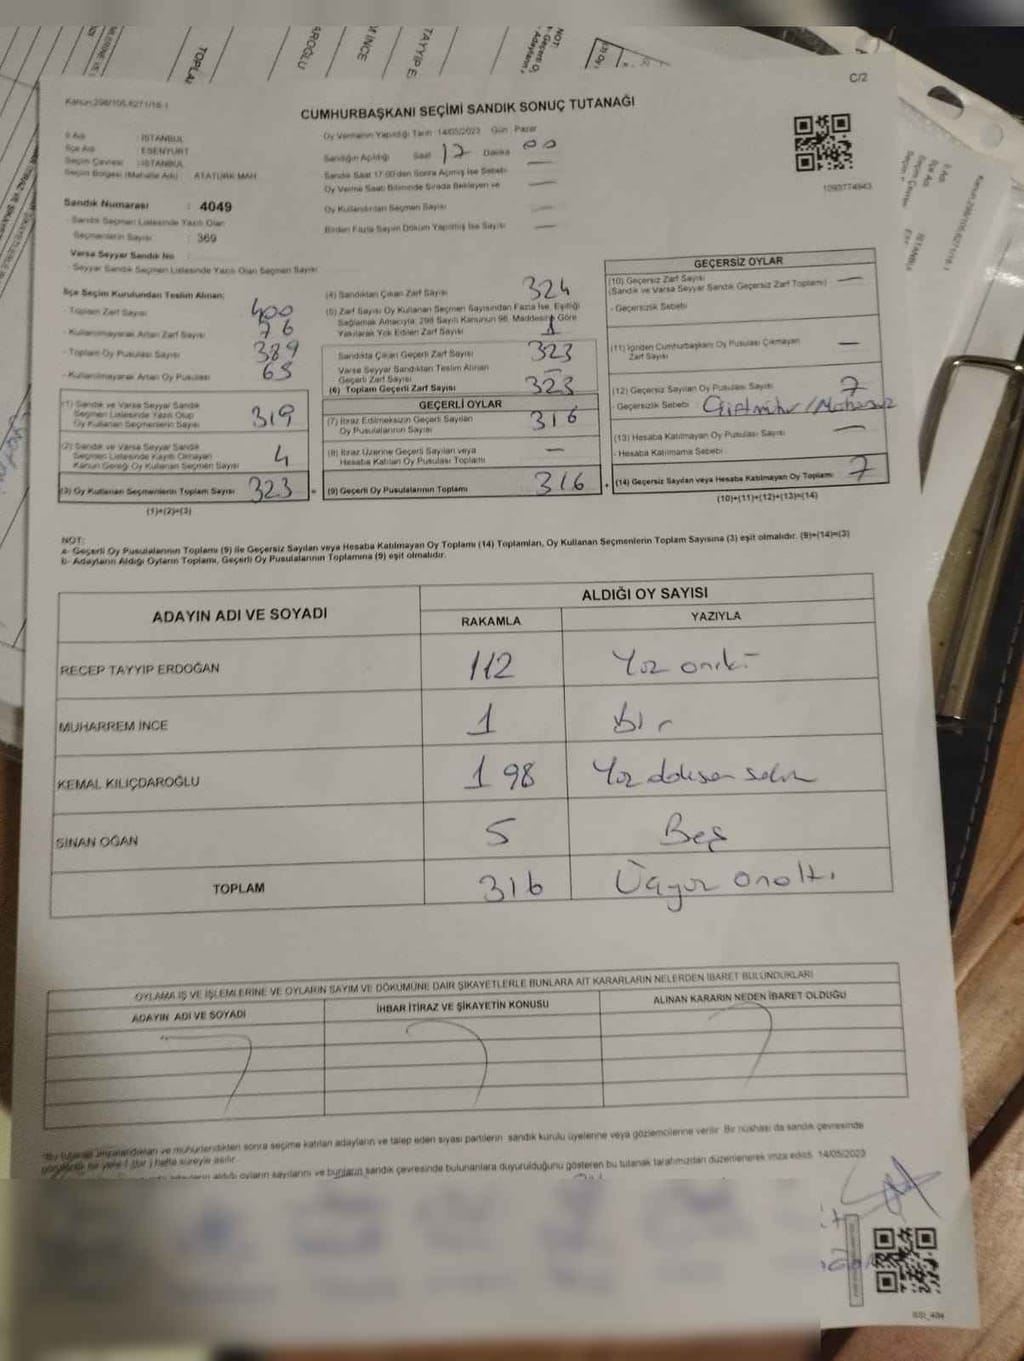 C/2
Kanun:298/105,6271/18-1
CUMHURBAŞKANI SEÇİMİ SANDIK SONUÇ TUTANAĞI
İl Adı : İSTANBUL
İlçe Adı : ESENYURT
Seçim Çevresi : İSTANBUL
Seçim Bölgesi (Mahalle Adı) : ATATÜRK MAH
Sandık Numarası : 4049
- Sandık Seçmen Listesinde Yazılı Olan
Seçmenlerin Sayısı : 369
Varsa Seyyar Sandık No
- Seyyar Sandık Seçmen Listesinde Yazılı Olan Seçmen Sayısı
Oy Vermenin Yapıldığı Tarih :14/05/2023 Gün : Pazar
Sandığın Açıldığı Saat 17 Dakika 00
Sandık Saat 17.00'den Sonra Açılmış İse Sebebi —
Oy Verme Saati Bitiminde Sırada Bekleyen ve —
Oy Kullandırılan Seçmen Sayısı —
Birden Fazla Sayım Döküm Yapılmış İse Sayısı —
1093774943
İlçe Seçim Kurulundan Teslim Alınan:
- Toplam Zarf Sayısı 400
- Kullanılmayarak Artan Zarf Sayısı 76
- Toplam Oy Pusulası Sayısı 389
- Kullanılmayarak Artan Oy Pusulası 65
(1) Sandık ve Varsa Seyyar Sandık
Seçmen Listesinde Yazılı Olup
Oy Kullanan Seçmenlerin Sayısı 319
(2) Sandık ve Varsa Seyyar Sandık
Seçmen Listesinde Kayıtlı Olmayan
Kanun Gereği Oy Kullanan Seçmen Sayısı 4
(3) Oy Kullanan Seçmenlerin Toplam Sayısı 323
(1)+(2)=(3)
(4) Sandıktan Çıkan Zarf Sayısı 324
(5) Zarf Sayısı Oy Kullanan Seçmen Sayısından Fazla İse, Eşitliği
Sağlamak Amacıyla, 298 Sayılı Kanunun 98. Maddesine Göre
Yakılarak Yok Edilen Zarf Sayısı 1
Sandıkta Çıkan Geçerli Zarf Sayısı 323
Varsa Seyyar Sandıktan Teslim Alınan
Geçerli Zarf Sayısı —
(6) Toplam Geçerli Zarf Sayısı 323
GEÇERLİ OYLAR
(7) İtiraz Edilmeksizin Geçerli Sayılan
Oy Pusulalarının Sayısı 316
(8) İtiraz Üzerine Geçerli Sayılan veya
Hesaba Katılan Oy Pusulası Toplamı —
= (9) Geçerli Oy Pusulalarının Toplamı 316
GEÇERSİZ OYLAR
(10) Geçersiz Zarf Sayısı
(Sandık ve Varsa Seyyar Sandık Geçersiz Zarf Toplamı) —
- Geçersizlik Sebebi
(11) İçinden Cumhurbaşkanı Oy Pusulası Çıkmayan
Zarf Sayısı —
(12) Geçersiz Sayılan Oy Pusulası Sayısı 7
- Geçersizlik Sebebi
(13) Hesaba Katılmayan Oy Pusulası Sayısı —
- Hesaba Katılmama Sebebi
+ (14) Geçersiz Sayılan veya Hesaba Katılmayan Oy Toplamı 7
(10)+(11)+(12)+(13)=(14)
NOT:
a- Geçerli Oy Pusulalarının Toplamı (9) ile Geçersiz Sayılan veya Hesaba Katılmayan Oy Toplamı (14) Toplamları, Oy Kullanan Seçmenlerin Toplam Sayısına (3) eşit olmalıdır. (9)+(14)=(3)
b- Adayların Aldığı Oyların Toplamı, Geçerli Oy Pusulalarının Toplamına (9) eşit olmalıdır.
ADAYIN ADI VE SOYADI
ALDIĞI OY SAYISI
RAKAMLA YAZIYLA
RECEP TAYYIP ERDOĞAN 112 Yüz oniki
MUHARREM İNCE 1 Bir
KEMAL KILIÇDAROĞLU 198 Yüz doksan sekiz
SİNAN OĞAN 5 Beş
TOPLAM 316 Üçyüz onaltı
OYLAMA İŞ VE İŞLEMLERİNE VE OYLARIN SAYIM VE DÖKÜMÜNE DAİR ŞİKAYETLERLE BUNLARA AİT KARARLARIN NELERDEN İBARET BULUNDUKLARI
ADAYIN ADI VE SOYADI İHBAR İTİRAZ VE ŞİKAYETİN KONUSU ALINAN KARARIN NEDEN İBARET OLDUĞU
imzalandıktan ve mühürlendikten sonra seçime katılan adayların ve talep eden siyasi partilerin sandık kurulu üyelerine veya gözlemcilerine verilir. Bir nüshası da sandık çevresinde
görülebilir bir yere 1 (bir) hafta süreyle asılır.
aldığı oyların sayılarını ve bunların sandık çevresinde bulunanlara duyurulduğunu gösteren bu tutanak tarafımızdan düzenlenerek imza edildi. 14/05/2023